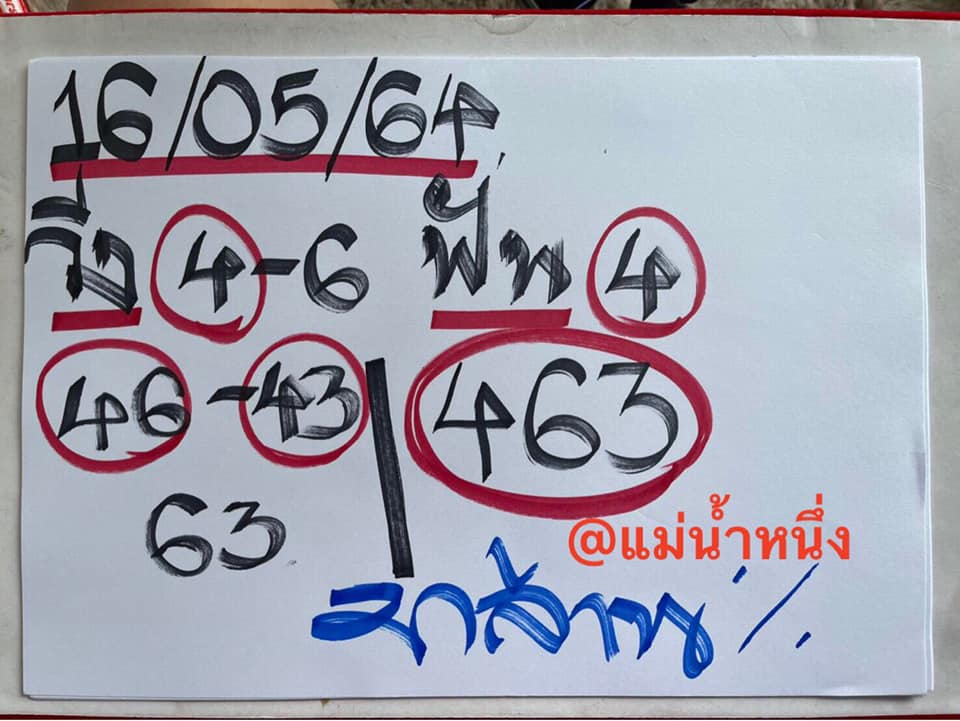 16/05/64
วิ่ง 4-6 ฟัน 4
46-43 463
63
@แม่น้ำหนึ่ง
%